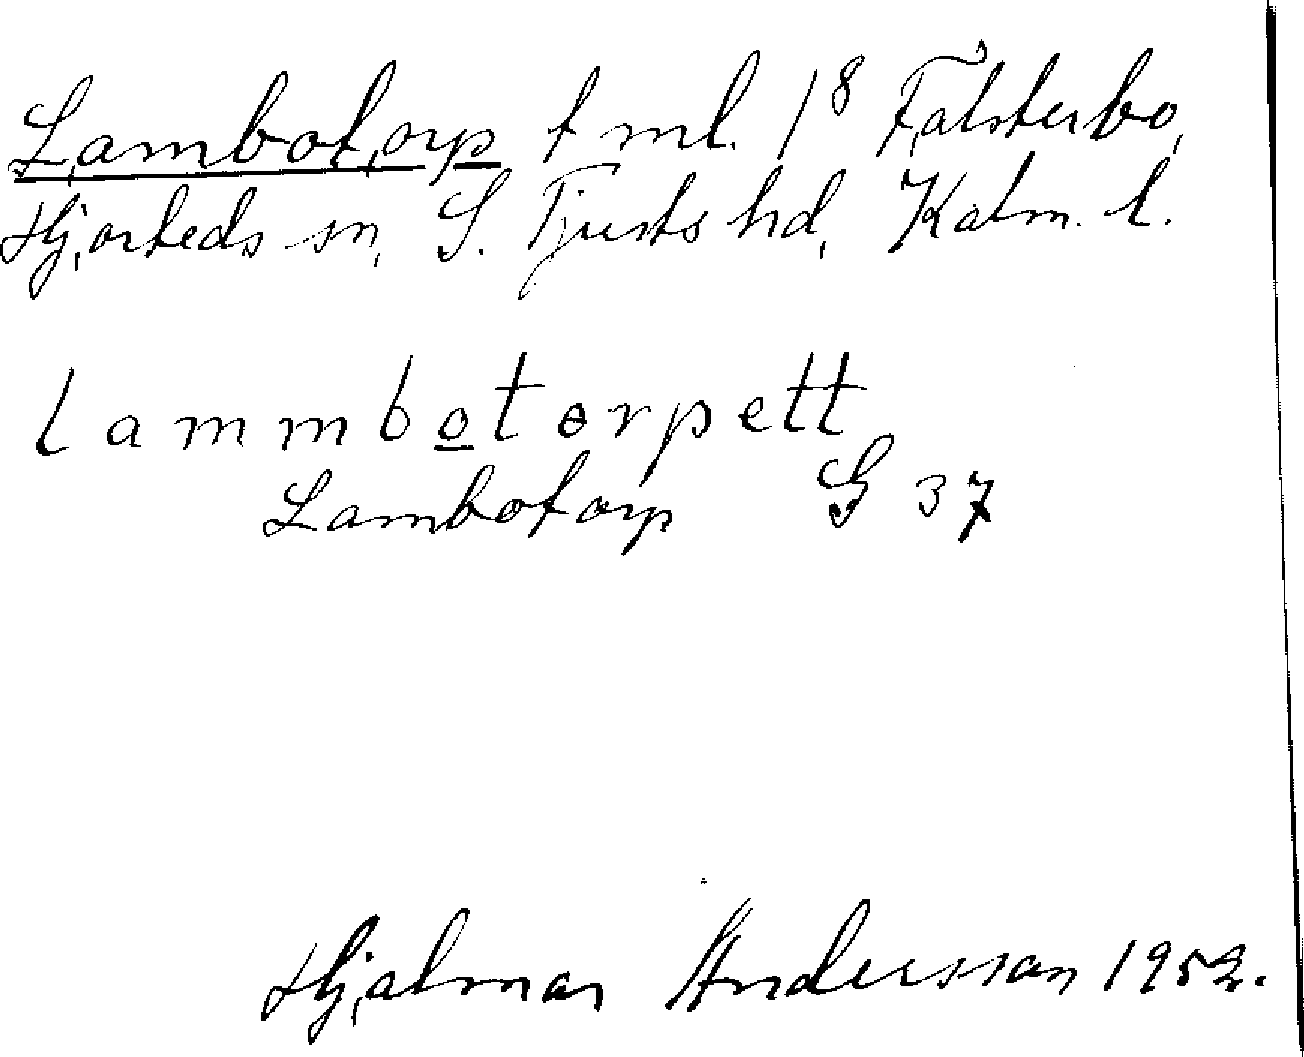 Lambotorp t ml. 1⁸ Falsterbo,
Hjorteds sn, S. Tjusts hd, Kalm. l.
lammbotorpett
Lambotorp G 37
Hjalmar Andersson 1952.